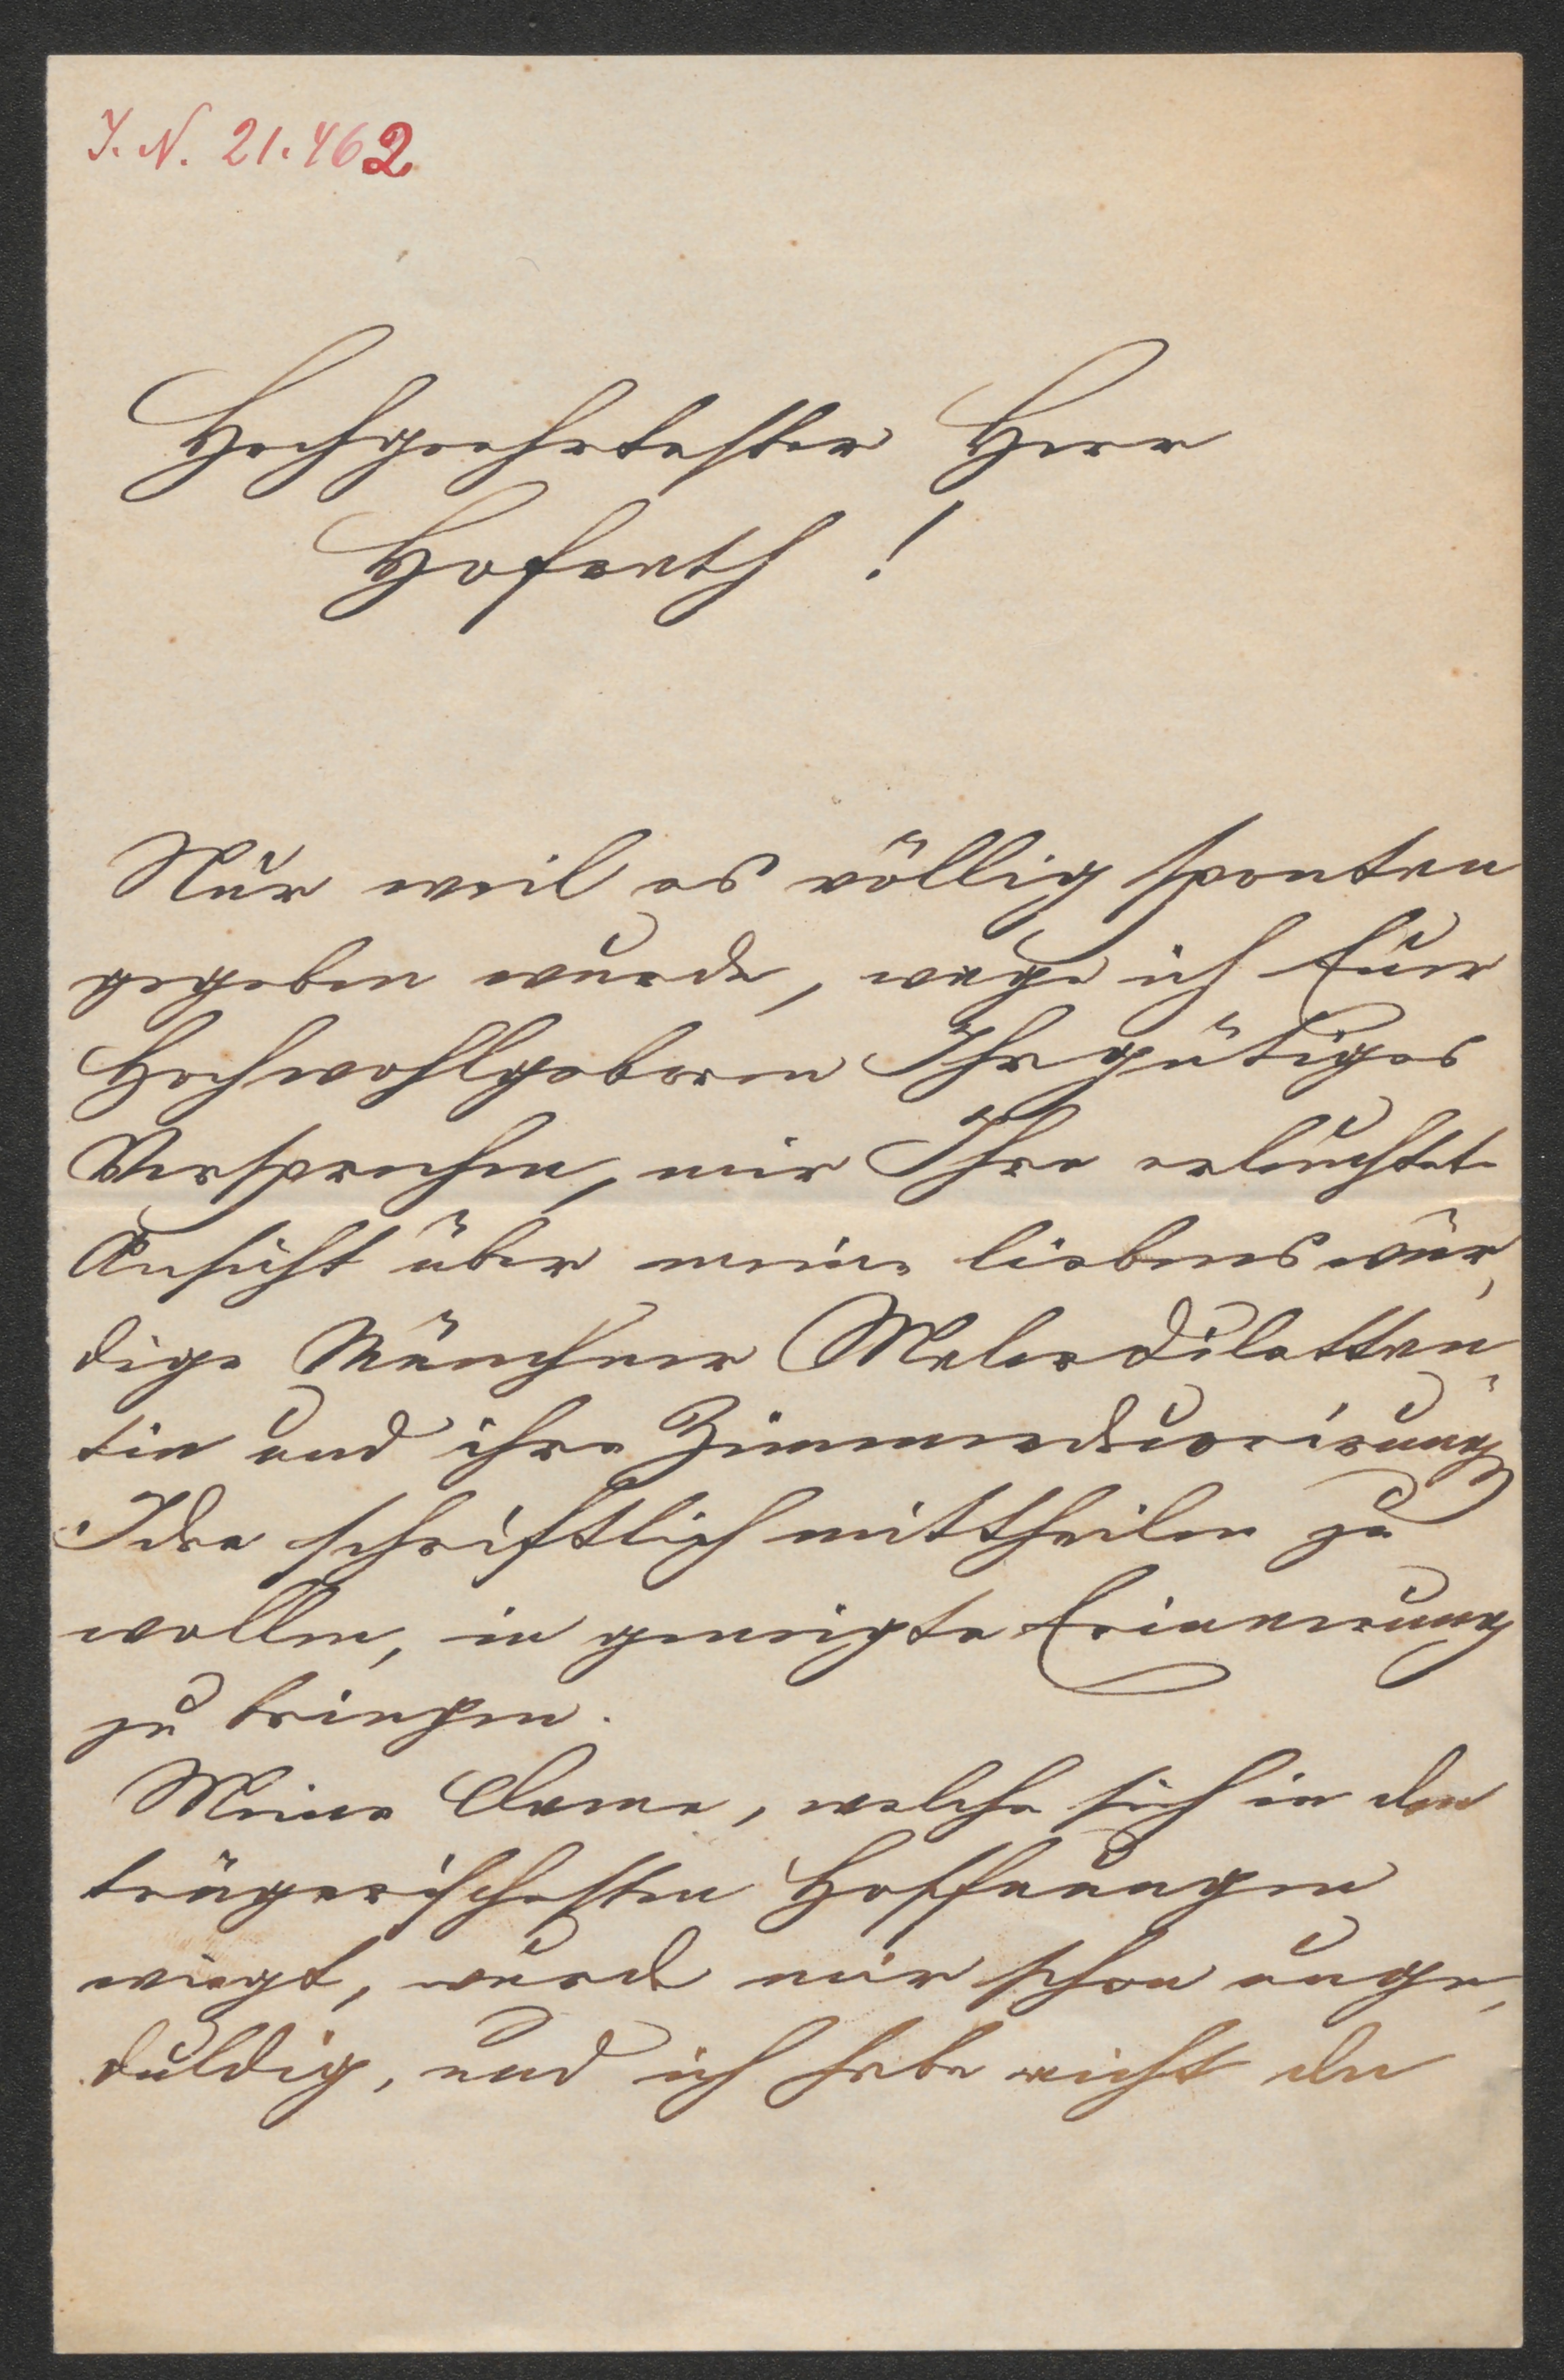 I. N. 21.462
Hochgeehrtester Herr
Hofrath!
Nur weil es völlig spontan
gegeben wurde, wage ich Euer
Hochwohlgeboren Ihr gütiges
Versprechen, mir Ihre erleuchtete
Ansicht über meine liebenswür,
dige Münchner Malerdilettan„
tin und ihre Zimmerdecorirungs
Idee schriftlich mittheilen zu
wollen, in geneigte Erinnerung
zu bringen.
Meine Dame, welche sich in den
trügerischesten Hoffnungen
wiegt, wurde mir schon unge,
duldig, und ich habe nicht den